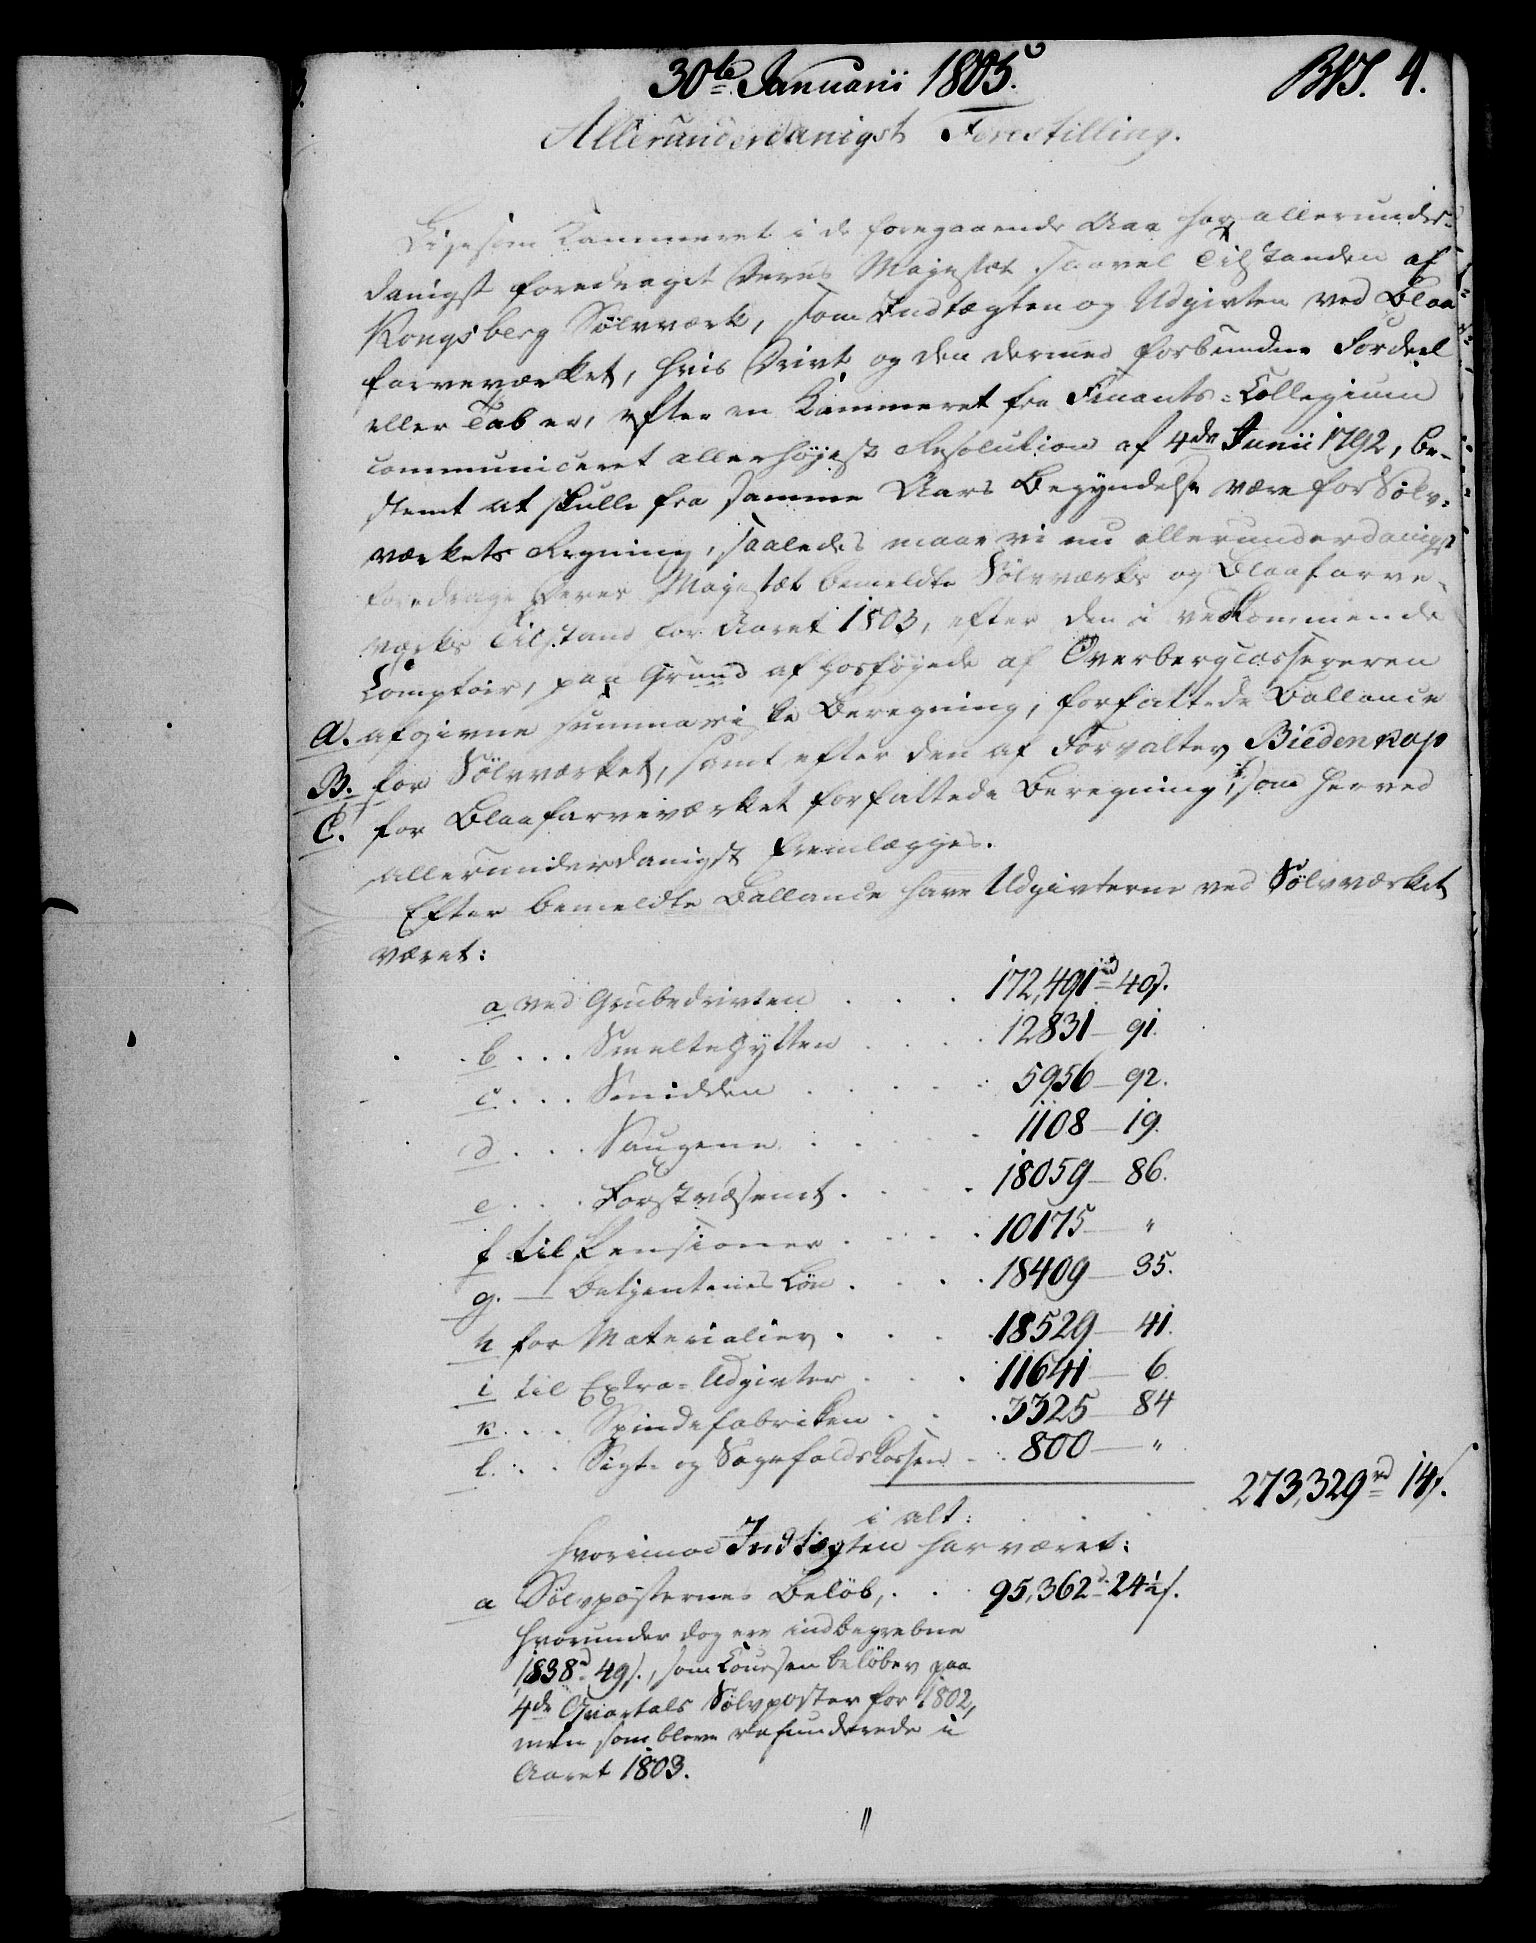 30te Januarii 1805.
BVS. 4.
Allerunderdanigst Forestilling.
Ligesom Kammeret i de foregaaende Aar har allerunder-
danigst foredraget Deres Majestæt saavel Tilstanden af
Kongsberg Sölvværk, som Indtægten og Udgivten ved Blaa
farveværket, hvis Drivt og den dermed forbundne Fordeel
eller Tab er, efter en Kammeret fra Finants-Collegium
communiceret allerhöjeste Resolution af 4de Junii 1792, be-
stemt at skulle fra samme Aars Begyndelse være for Sölv-
værkets Regning, saaledes maae vi nu allerunderdanigst
foredrage Deres Majestæt bemeldte Sölvværks og Blaafarve-
værks Tilstand for Aaret 1803, efter den i vedkommende
Comptoir, paa Grund af hosföjede af Overbergcassereren
A. afgivne summariske Beregning, forfattede Ballance
B. for Sölvværket, samt efter den af Forvalter Biedenkap
C. for Blaafarveværket forfattede Beregning, som herved
allerunderdanigst fremlægges.
Efter bemeldte Ballance have Udgivterne ved Sölvværket
været:
a ved Grubedrivten . . . 172,491rd 40s.
b . . . Smeltehytten . . . . 12831 - 91.
c . . . Smidden . . . . . 5956 - 92.
d . . . Saugene . . . . . 1108 - 19.
e . . . Forstvæsenet . . . . 18059 - 86.
f til Pensioner . . . . 10175 - "
g. - Betjentenes Lön . . . . 18409 - 35.
h for Materialier . . . . 18529 - 41.
i til Extra-Udgivter . . . 11641 - 6.
k . . . Spindefabriken . . . 3325 - 84
l. . . Sigt- og Sagefaldskassen . . 800 - "
i alt: . . . 273,329rd 14s.
hvorimod Indtægten har været:
a Sölvposternes Belöb, . . . 95,362d 24½s.
hvorunder dog ere indbegrebne
1838d 49s., som Coursen belöber paa
4de Qvartals Sölvposter for 1802,
men som bleve refunderede i
Aaret 1803.